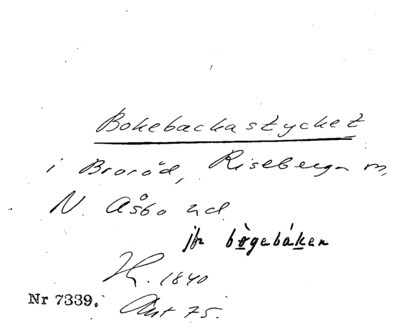 Bokebackastycket
i Broröd, Riseberga sn,
N. Åsbo hd
jfr bögebáken
H. 1840
Nr 7339. Akt 75.